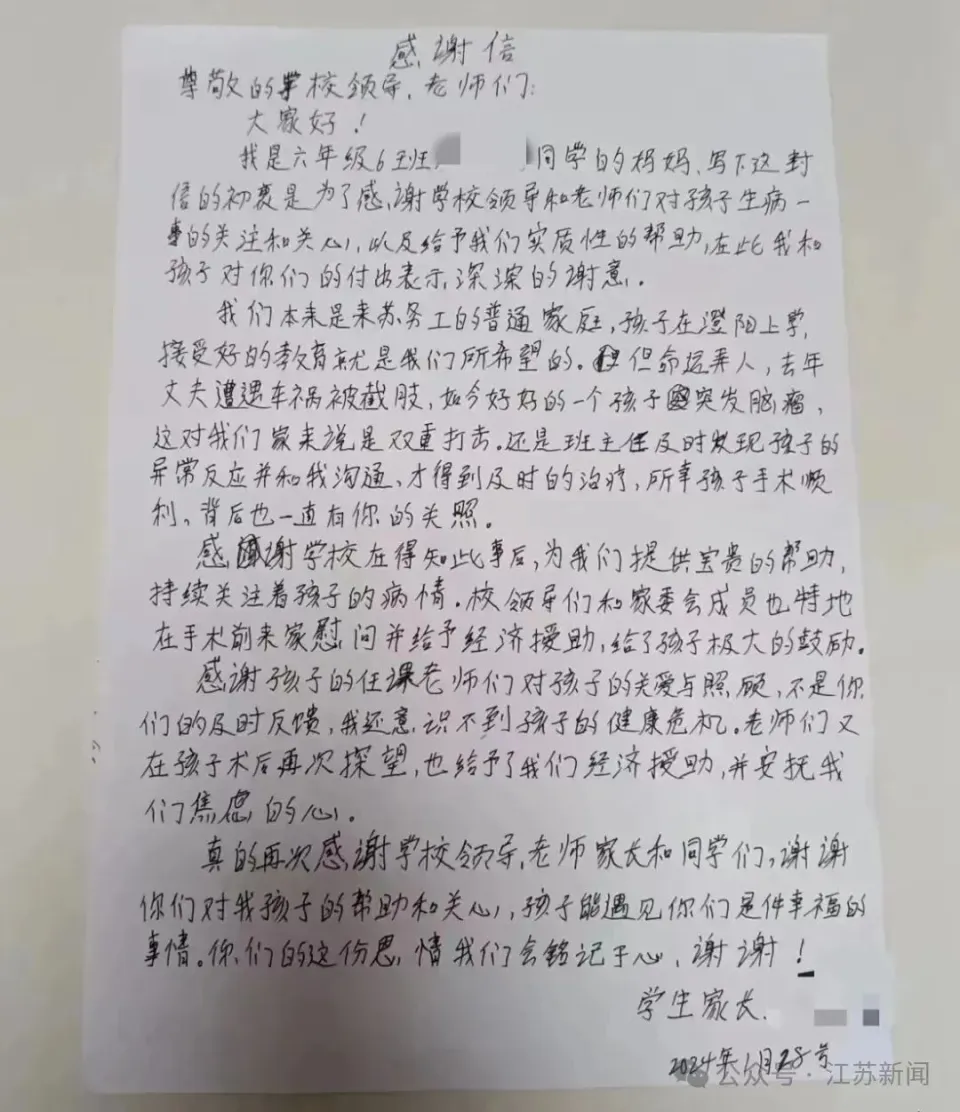 感谢信
尊敬的学校领导、老师们:
大家好!
我是六年级6班 同学的妈妈、写下这封
信的初衷是为了感谢学校领导和老师们对孩子生病一
事的关注和关心,以及给予我们实质性的帮助,在此我和
孩子对你们的付出表示深深的谢意.
我们本来是来苏务工的普通家庭,孩子在澄阳上学,
接受好的教育就是我们所希望的.但命运弄人,去年
丈夫遭遇车祸被截肢,如今好好的一个孩子突发脑瘤,
这对我们家来说是双重打击.还是班主任及时发现孩子的
异常反应并和我沟通、才得到及时的治疗,所幸孩子手术顺
利、背后也一直有你的关照。
感谢学校在得知此事后,为我们提供宝贵的帮助,
持续关注着孩子的病情.校领导们和家委会成员也特地
在手术前来家慰问并给予经济援助,给了孩子极大的鼓励。
感谢孩子的任课老师们对孩子的关爱与照顾,不是你
们的及时反馈,我还意识不到孩子的健康危机.老师们又
在孩子术后再次探望,也给予了我们经济援助,并安抚我
们焦虑的心.
真的再次感谢学校领导,老师家长和同学们,谢谢
你们对我孩子的帮助和关心,孩子能遇见你们是件幸福的
事情。你们的这份恩情我们会铭记于心、谢谢!
学生家长.
2024年1月28号
公众号·江苏新闻